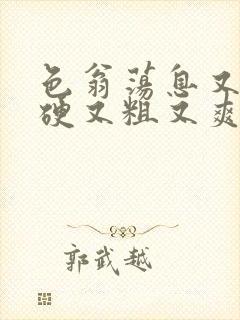 色翁荡息又
硬又粗又爽
郭武越